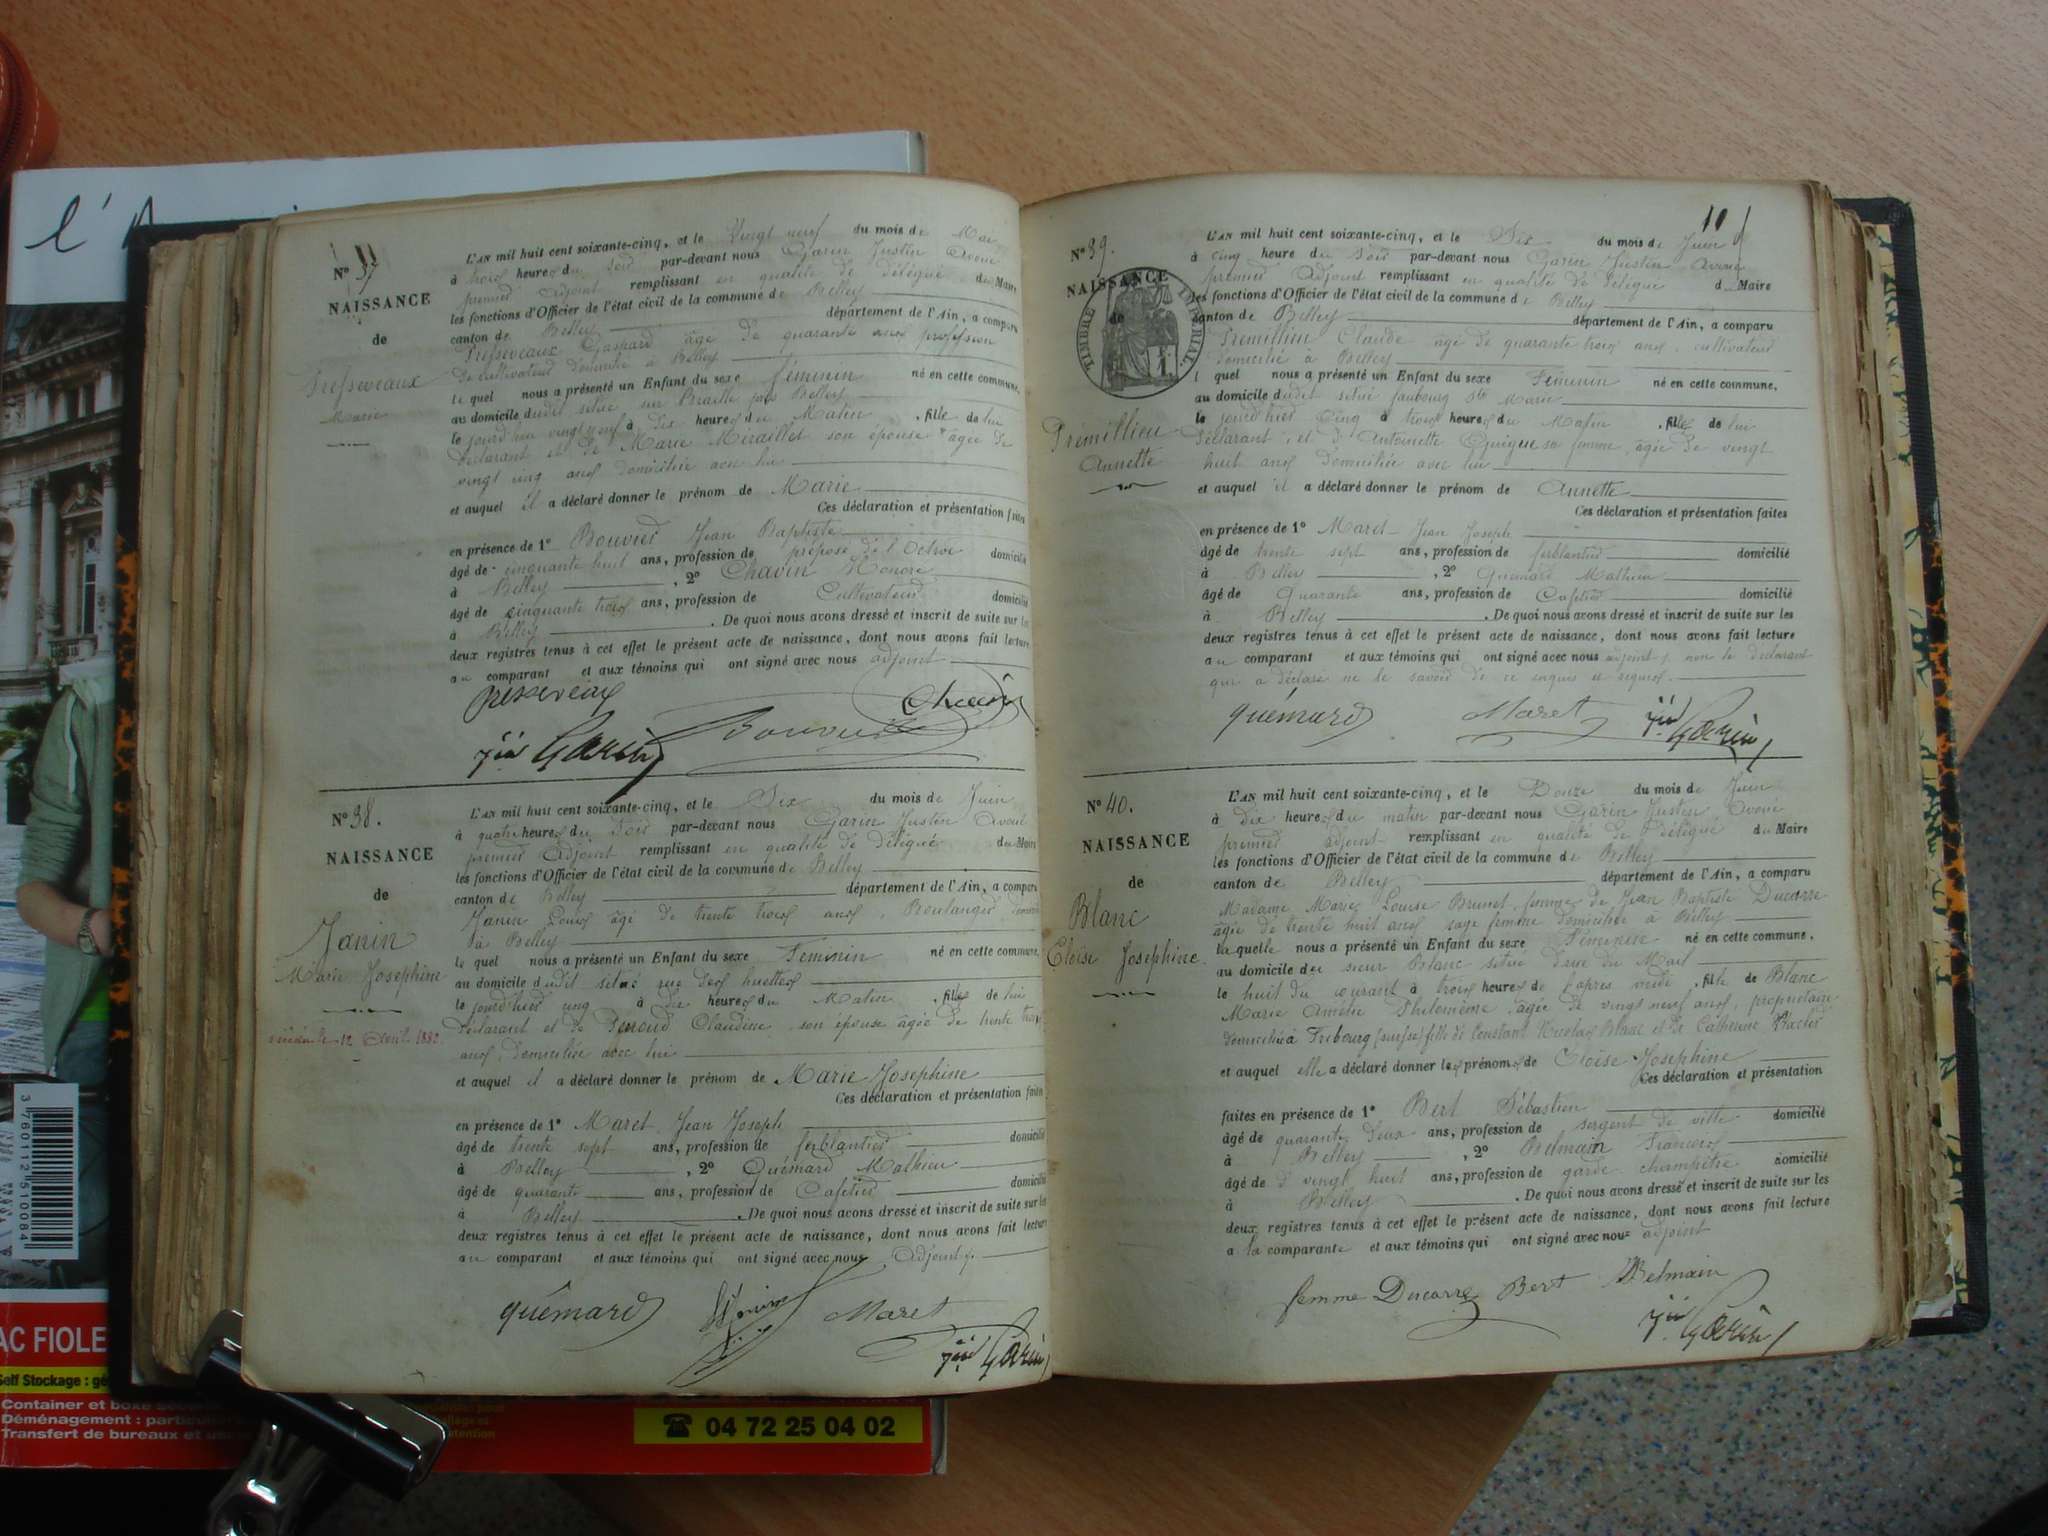 l'
N° 37
NAISSANCE
de
Presseveaux
Marie
L'AN mil huit cent soixante-cinq, et le Vingt neuf du mois de Mai
à trois heures du soir par-devant nous Garin Justin Avoué
premier adjoint remplissant en qualité de délégué du Maire
les fonctions d'Officier de l'état civil de la commune de Belley
canton de Belley département de l'Ain, a comparu
Presseveaux Gaspard âgé de quarante ans profession
de cultivateur domicilié à Belley
le quel nous a présenté un Enfant du sexe féminin né en cette commune,
au domicile dudit situé sur Belley
le jourd'hui vingt neuf à dix heures du Matin, fille de lui
déclarant et de Marie Miraillet son épouse âgée de
vingt cinq ans domiciliée avec lui
et auquel il a déclaré donner le prénom de Marie
Ces déclaration et présentation faites
en présence de 1° Bouvier Jean Baptiste
âgé de cinquante huit ans, profession de préposé de l'Octroi domicilié
à Belley, 2° Chavin Honoré
âgé de cinquante trois ans, profession de Cultivateur domicilié
à Belley. De quoi nous avons dressé et inscrit de suite sur les
deux registres tenus à cet effet le présent acte de naissance, dont nous avons fait lecture
au comparant et aux témoins qui ont signé avec nous adjoint
Presseveaux Chavin
Garin Bouvier
N° 38.
NAISSANCE
de
Janin
Marie Josephine
décédée le 12 Avril 1882.
L'AN mil huit cent soixante-cinq, et le Six du mois de Juin
à quatre heures du soir par-devant nous Garin Justin Avoué
premier Adjoint remplissant en qualité de délégué du Maire
les fonctions d'Officier de l'état civil de la commune de Belley
canton de Belley département de l'Ain, a comparu
Janin Louis âgé de trente trois ans, Boulanger domicilié
à Belley
le quel nous a présenté un Enfant du sexe Féminin né en cette commune,
au domicile dudit situé rue des huettes
le jourd'hier cinq à dix heures du Matin, fille de lui
déclarant et de Perroud Claudine son épouse âgée de trente trois
ans, domiciliée avec lui
et auquel il a déclaré donner le prénom de Marie Josephine
Ces déclaration et présentation faites
en présence de 1° Maret Jean Joseph
âgé de trente sept ans, profession de ferblantier domicilié
à Belley, 2° Quémard Mathieu
âgé de quarante ans, profession de Cafetier domicilié
à Belley. De quoi nous avons dressé et inscrit de suite sur les
deux registres tenus à cet effet le présent acte de naissance, dont nous avons fait lecture
au comparant et aux témoins qui ont signé avec nous adjoint
quémard Maret
Garin
10
N° 39.
NAISSANCE
de
TIMBRE IMPERIAL
Prémillieu
Annette
L'AN mil huit cent soixante-cinq, et le Six du mois de Juin
à cinq heure du soir par-devant nous Garin Justin Avoué
premier Adjoint remplissant en qualité de délégué d Maire
les fonctions d'Officier de l'état civil de la commune de Belley
canton de Belley département de l'Ain, a comparu
Prémillieu Claude âgé de quarante trois ans, cultivateur
domicilié à Belley
l quel nous a présenté un Enfant du sexe Féminin né en cette commune,
au domicile dudit situé faubourg Ste Marie
le jourd'hier cinq à trois heures du Matin, fille de lui
déclarant, et d'Antoinette Quique sa femme, âgée de vingt
huit ans domiciliée avec lui
et auquel il a déclaré donner le prénom de Annette
Ces déclaration et présentation faites
en présence de 1° Maret Jean Joseph
âgé de trente sept ans, profession de ferblantier domicilié
à Belley, 2° Quémard Mathieu
âgé de Quarante ans, profession de Cafetier domicilié
à Belley. De quoi nous avons dressé et inscrit de suite sur les
deux registres tenus à cet effet le présent acte de naissance, dont nous avons fait lecture
au comparant et aux témoins qui ont signé avec nous adjoint, non le déclarant
qui a déclaré ne le savoir de ce enquis et requis.
quémard Maret Garin
N° 40.
NAISSANCE
de
Blanc
Eloïse Josephine
L'AN mil huit cent soixante-cinq, et le Douze du mois de Juin
à dix heures du matin par-devant nous Garin Justin Avoué
premier adjoint remplissant en qualité de délégué du Maire
les fonctions d'Officier de l'état civil de la commune de Belley
canton de Belley département de l'Ain, a comparu
Madame Marie Louise Brunet, femme de Jean Baptiste Ducarre
âgée de trente huit ans sage femme domiciliée à Belley
la quelle nous a présenté un Enfant du sexe Féminin né en cette commune,
au domicile du sieur Blanc situé rue du Mail
le huit du courant à trois heures de l'après midi, fille de Blanc
Marie Amélie Philomène, âgée de vingt neuf ans, propriétaire
domiciliée à Fribourg (suisse) fille de Constant Nicolas Blanc et de Catherine
et auquel elle a déclaré donner les prénoms de Eloïse Josephine
Ces déclaration et présentation
faites en présence de 1° Bert Sébastien
âgé de quarante deux ans, profession de sergent de ville domicilié
à Belley, 2° Belmain François
âgé de vingt huit ans, profession de garde champêtre domicilié
à Belley. De quoi nous avons dressé et inscrit de suite sur les
deux registres tenus à cet effet le présent acte de naissance, dont nous avons fait lecture
a la comparante et aux témoins qui ont signé avec nous adjoint
femme Ducarre Bert Belmain
Garin
3 760112 510084
AC FIOLE
Self Stockage : gé
Container et boxe
Déménagement : particu
Transfert de bureaux et us
04 72 25 04 02